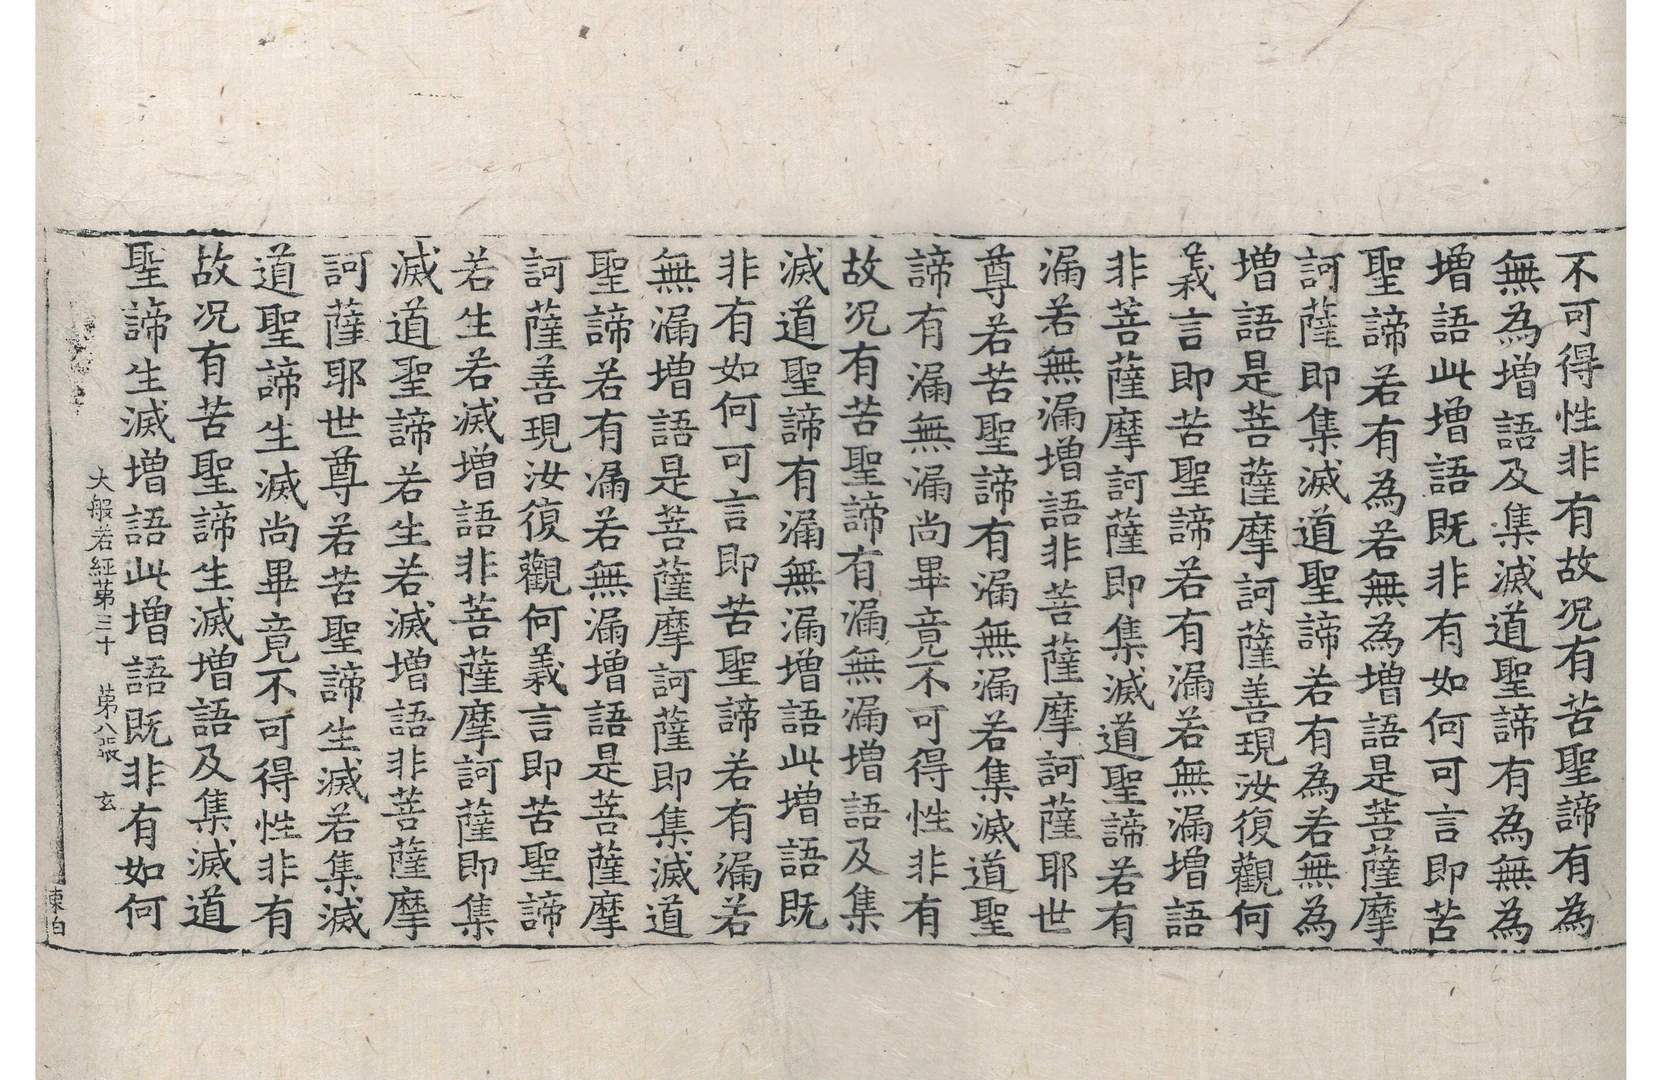 不可得性非有故况有苦聖諦有為
無為增語及集滅道聖諦有為無為
增語此增語既非有如何可言即苦
聖諦若有為若無為增語是菩薩摩
訶薩即集滅道聖諦若有為若無為
增語是菩薩摩訶薩善現汝復觀何
義言即苦聖諦若有漏若無漏增語
非菩薩摩訶薩即集滅道聖諦若有
漏若無漏增語非菩薩摩訶薩耶世
尊若苦聖諦有漏無漏若集滅道聖
諦有漏無漏尚畢竟不可得性非有
故况有苦聖諦有漏無漏增語及集
滅道聖諦有漏無漏增語此增語既
非有如何可言即苦聖諦若有漏若
無漏增語是菩薩摩訶薩即集滅道
聖諦若有漏若無漏增語是菩薩摩
訶薩善現汝復觀何義言即苦聖諦
若生若滅增語非菩薩摩訶薩即集
滅道聖諦若生若滅增語非菩薩摩
訶薩耶世尊若苦聖諦生滅若集滅
道聖諦生滅尚畢竟不可得性非有
故况有苦聖諦生滅增語及集滅道
聖諦生滅增語此增語既非有如何
大般若經苐三十 苐八張 玄